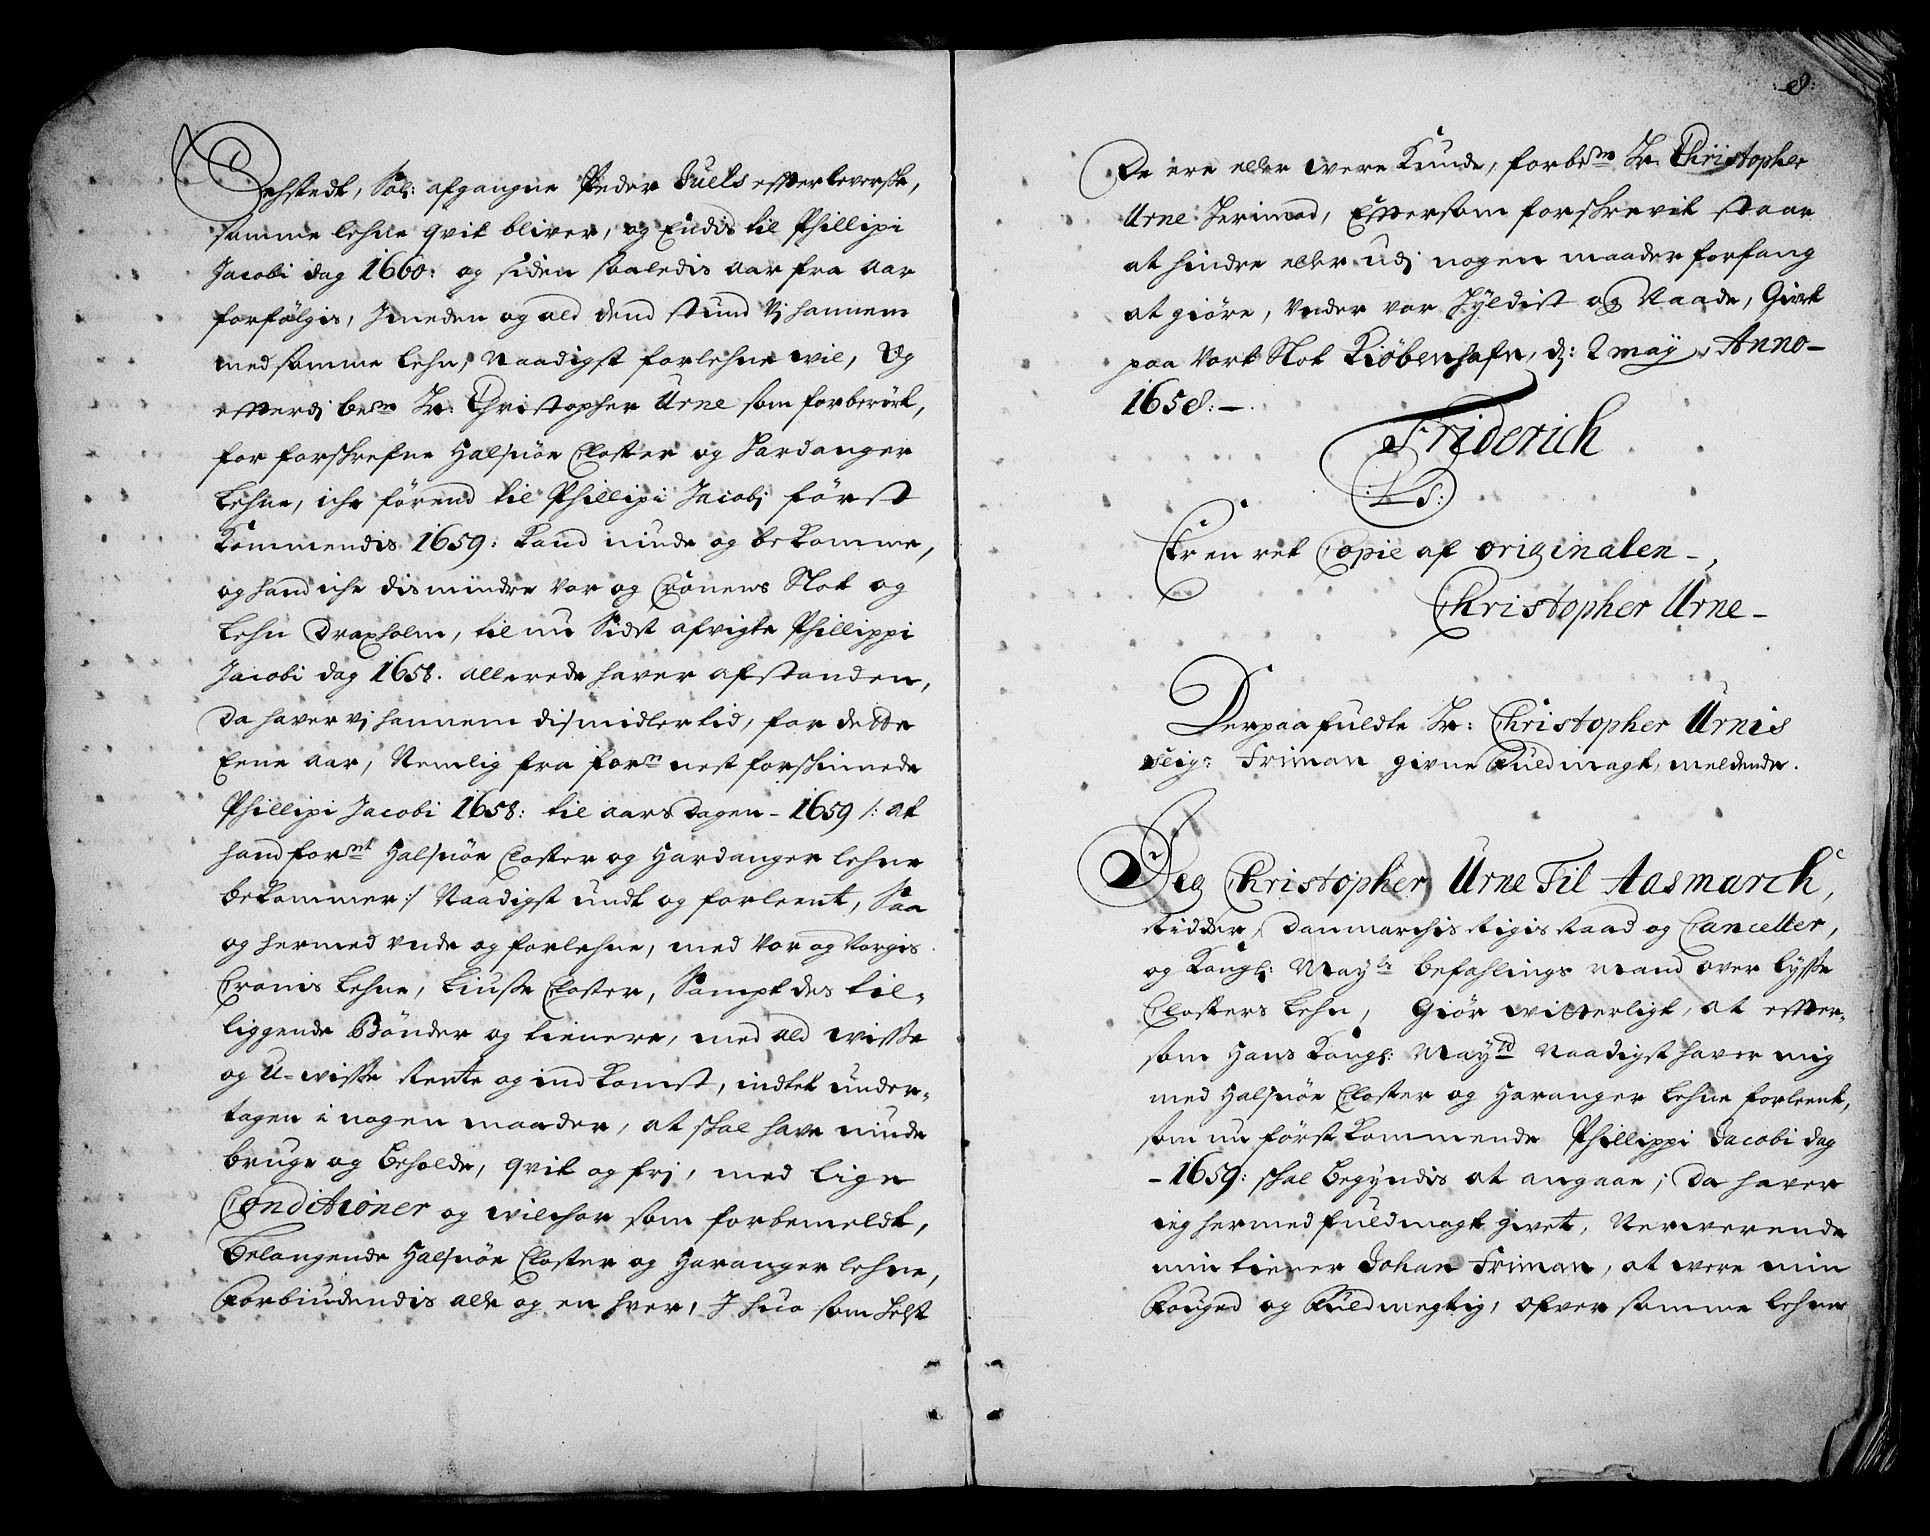 Sehstedt, Sal: afgangne Peder Juels efterleverske,
samme lehne qvit bliver, og Endis til Phillipi
Jacobi dag 1660: og siden saaledis Aar fra Aar
forfølgis, Imeden og ald dend stund Vj hannem
med samme Lehn, Naadigst forlehne wil, Og
efterdj bem:te Hr: Christopher Urne som forberørt,
for forskrefne Halsnøe Closter og Hardanger
Lehne, iche førend til Phillipi Jacobj først
Kommendis 1659: Kand niude og bekomme,
og hand iche dismindre Vor og Cronens Slot og
Lehn Draxholm, til nu Sidst afvigte Phillippi
Jacobi dag 1658. allerede haver afstanden,
Da haver vj hannem disimidlertid, for dette
Eene Aar, Nemlig fra forn nest forskinnede
Phillipi Jacobi 1658: til aars Dagen - 1659 /: at
hand fornt Halsnøe Closter og Hardanger lehne
bekommer :/ Naadigst undt og forleent, Saa
og hermed Vnde og forlehne, med Vor og Norgis
Cronis Lehne, Liusse Closter, Sampt des til-
liggende Bønder og tienere, med ald wisse
og U-wisse Rente og indkomst, indtet under-
tagen i nogen maader, at skal have niude
bruge og beholde, qvit og frj, med lige
Conditioner og wilchor som forbemeldt,
belangende Halsnøe Closter og Haranger lehne,
Forbiudendis alle og en hver, I hvo som helst
8:
De ere eller were Kunde, forbem Hr: Christopher
Urne herimod, Eftersom forskrevit staar
at hindre eller udj nogen maader forfang
at giøre, Vnder vor Hyldist og Naade, Givet
paa Vort Slot Kiøbenhafn, dj: 2 may, Anno-
1658:-
Friderich
:L S:
Er en ret Copie af originalen -,
Christopher Urne -
Derpaa fuldte Hr: Christopher Urnis
Seigr Friman givne Fuldmagt, meldende.
Jeg Christopher Urne Til Aasmarch,
Ridder, Danmarchis Rigis Raad og Canceller,
og Kongl: Mayts befahlings Mand over Lysse
Closters Lehn, Giør witterligt, at efter-
som Hans Kongl: Maytd Naadigst haver mig
med Halsnøe Closter og Haranger Lehne forleent,
som nu først kommende Phillippi Jacobi dag
- 1659: skal begyndis at angaae; Da haver
ieg hermed fuldmagt givet, Nerverende
min tiener Johan Friman, at were min
Fouged og Fuldmegtig, ofver samme lehne